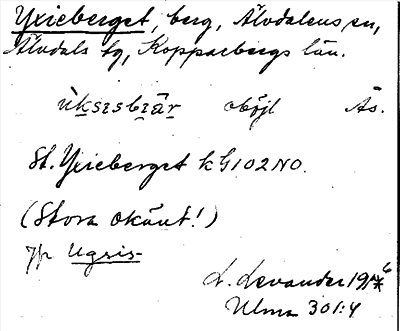 Yxieberget, berg, Älvdalens sn,
Älvdals tg, Kopparbergs län.
ùksɪsbɪär oböjl Ås.
St. Yxieberget k G 102 NO.
(Stora okänt!)
Jfr Ugsis-
L. Levander 1916
Ulma 301:4